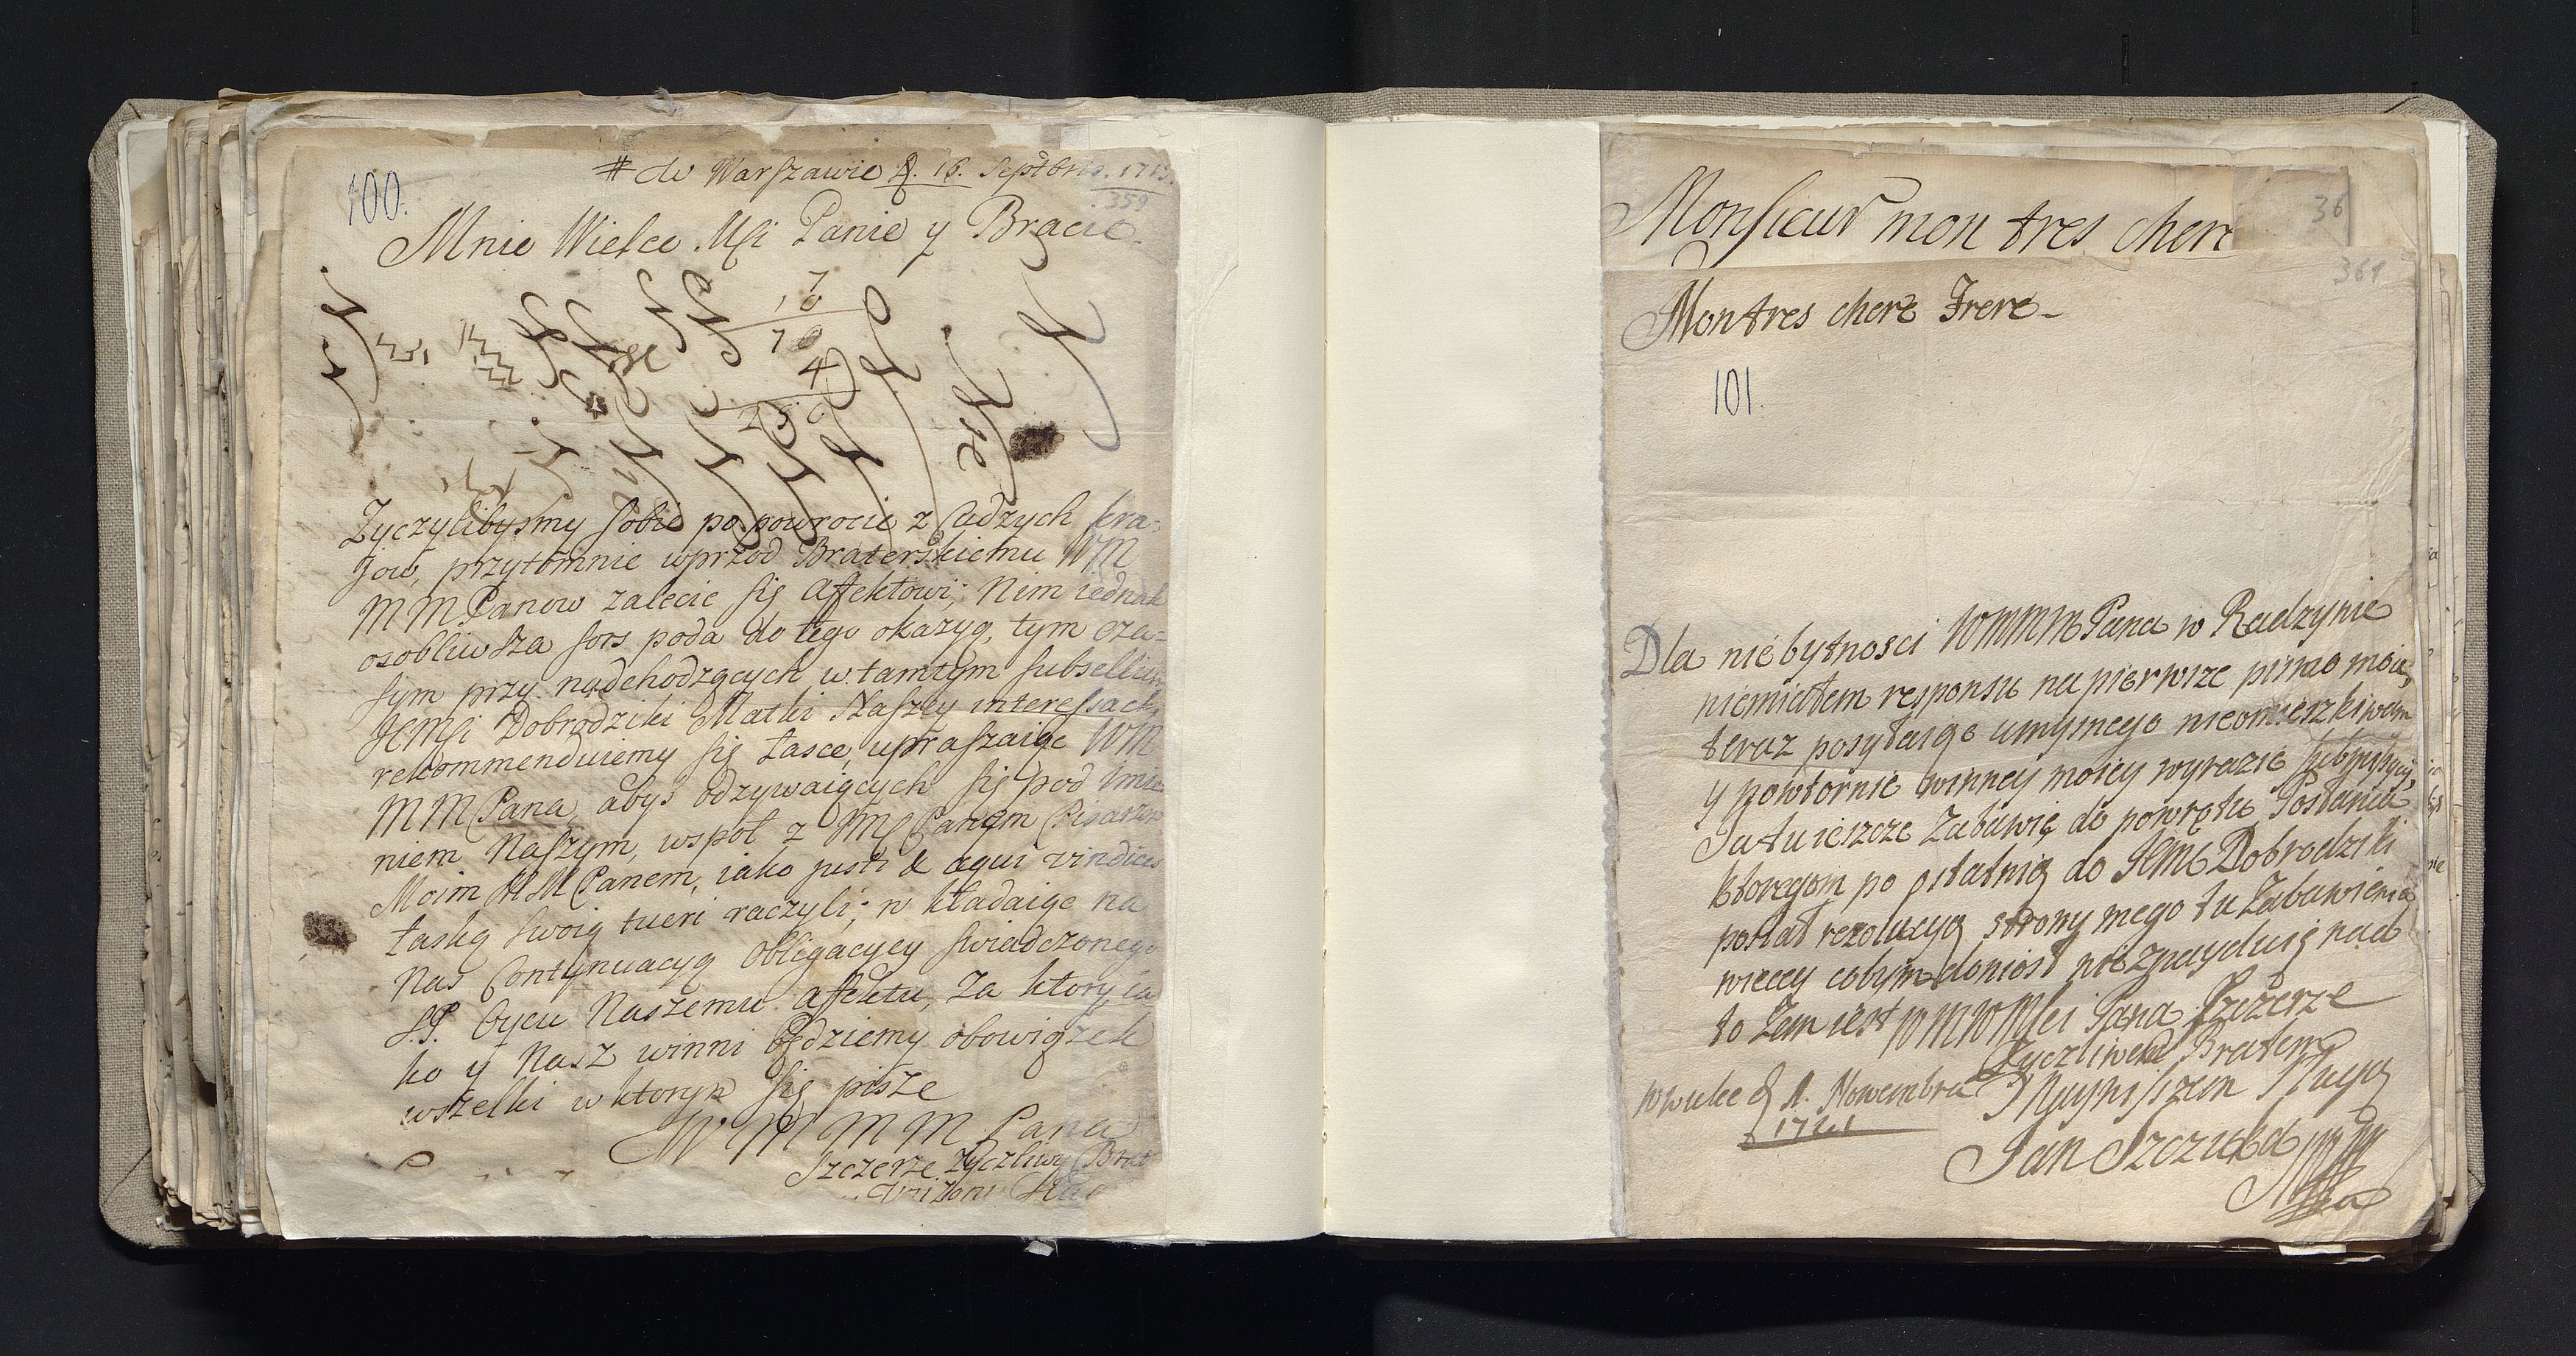 100.
# de Warszawie d. 16. Septbris. 1713.
359
Mnie Wielce Mći Panie y Bracie.
7
10
70
4
Zyczylibysmy sobie po powrocie z Cudzych kra-
jow, przytomnie wprzod Braterskiemu WM
MM Panow zalecic się Affektowi; Nim iednak
osobliwsza fors poda do tego okazyą, tym cza-
sym przy nadchodzących w tamtym subsellium
JEMści Dobrodziki Matki Naszey interessach,
rekommenduiemy się Łasce, upraszaiąc WM
MM Pana, abys odzywaiących się pod Imie-
niem Naszym, wspoł z JMś Panem Pisarzem
Moim MM Panem, iako justi & aqui vindices
Łaską swoią tueri raczyli; w kładaiąc na
Nas Contynuacyą obligacyey swiadczonego
S.P. Oycu Naszemu Affektu, Za ktory ia
ko y Nasz winni będziemy obowiązek
wszelki w ktorym się pisze
W M M M Pana
Szczerze zyczliwy Brat
Monsieur mon tres chere
36
361
Mon tres chere Frere-
101.
Dla niebytnosci WMMM Pana w Radzynie
niemiałem responsu na pierwsze pismo moie,
teraz posyłaiąc umysnego nieomieszkiwam
y powtornie winney moiey wyrazic submissyi,
Ja tu ieszcze Zabawię do powrotu Posłańca
ktoregom po ostatnią do JEMć Dobrodziki
posłał rezolucyą strony mego tu Zabawienia
więcey cobym doniosł nieznayduię nad
to Zem iest WMWMsci Pana Szczerze
Zyczliwem Bratem
Nayniszem Sługą
d 1. Nowembra
1721
Jan Szczuka